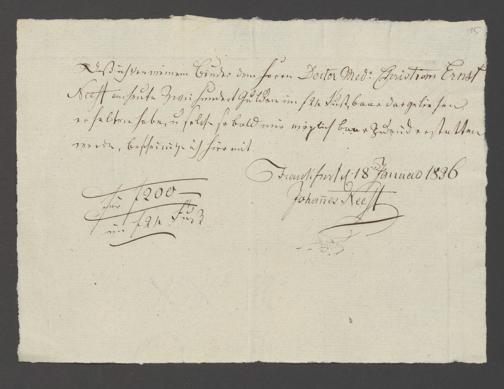 Daß ich von meinem Bruder dem Herrn Doctor Med: Christian Ernst
Neeff an heute Zwei hundert Gulden im f 24 Fuß baar dargeliehen
erhalten habe, u solche sobald mir möglich baar zurück erstatten
werde, bescheinige ich hiermit
Frankfurt d 18 Januar 1836
Johannes Neeff
für f 200 —
im f 24 Fuß